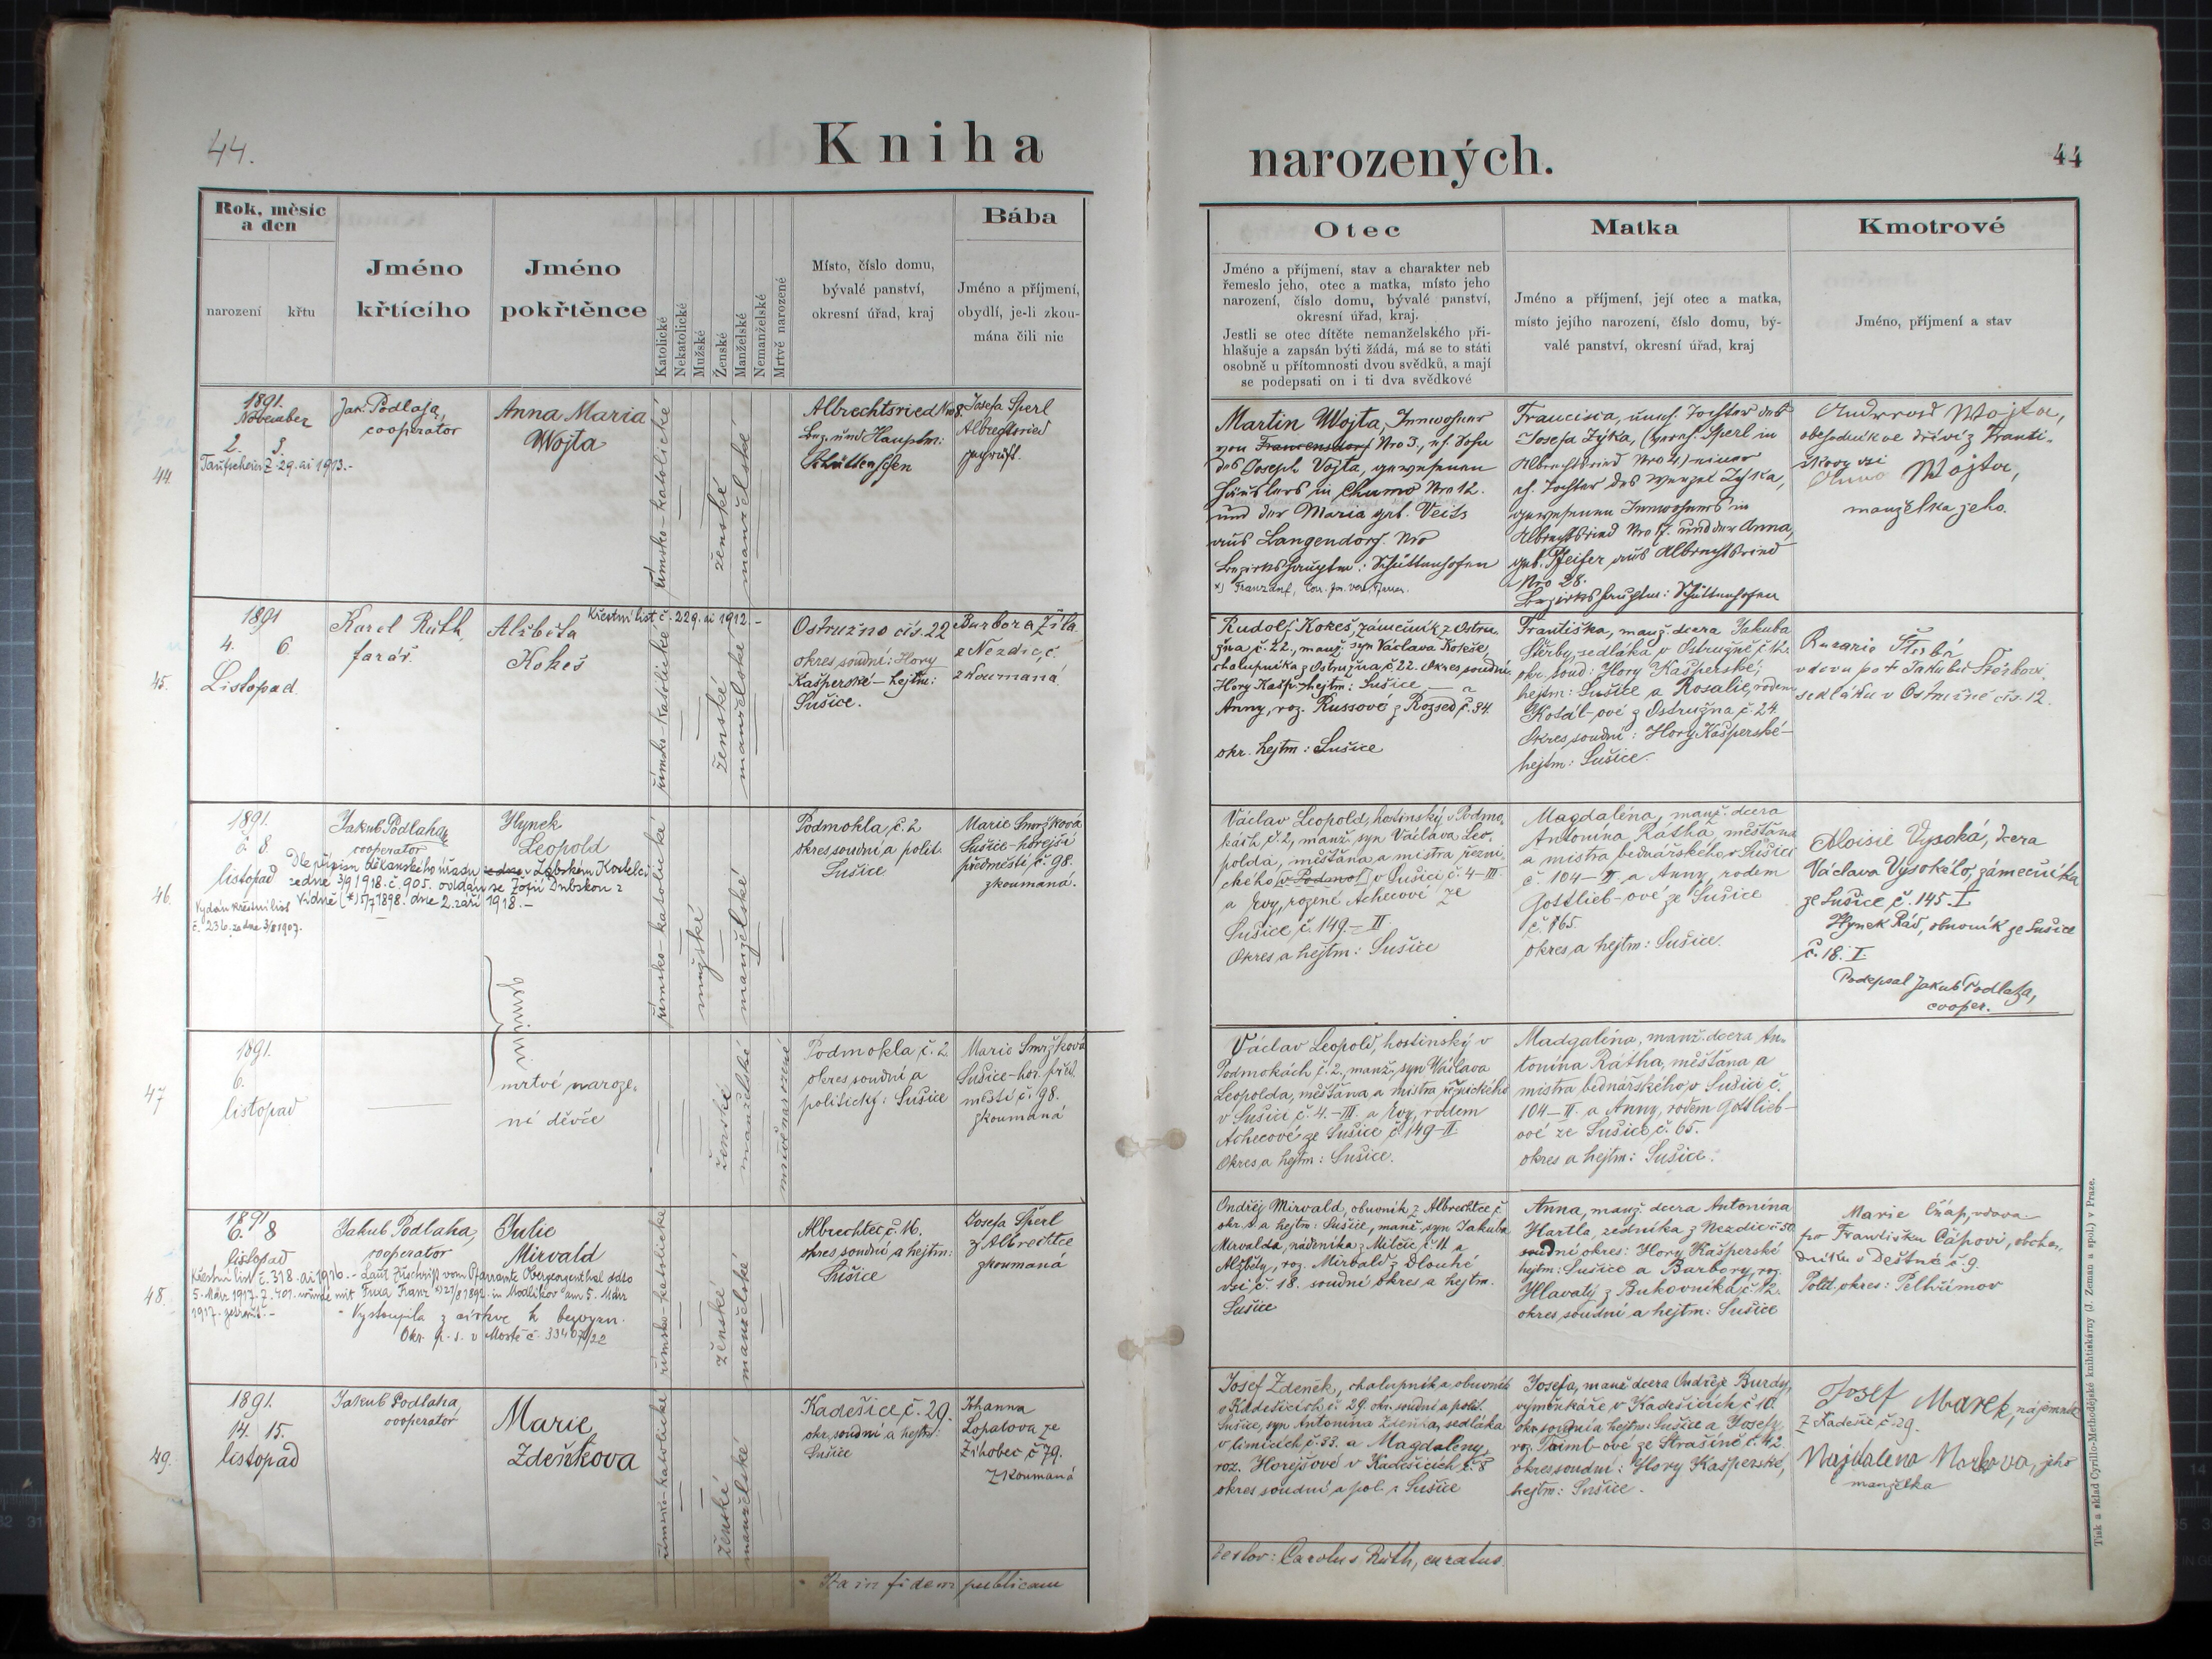 44.
Kniha
narozených.
44
Rok, měsíc
a den
narození
křtu
Jméno
křtícího
Jméno
pokřtěnce
Katolické
Nekatolické
Mužské
Ženské
Manželské
Nemanželské
Mrtvě narozené
Místo, číslo domu,
bývalé panství,
okresní úřad, kraj
Bába
Jméno a příjmení,
obydlí, je-li zkou-
mána čili nic
Otec
Jméno a příjmení, stav a charakter neb
řemeslo jeho, otec a matka, místo jeho
narození, číslo domu, bývalé panství,
okresní úřad, kraj.
Jestli se otec dítěte nemanželského při-
hlašuje a zapsán býti žádá, má se to státi
osobně u přítomnosti dvou svědků, a mají
se podepsati on i ti dva svědkové
Matka
Jméno a příjmení, její otec a matka,
místo jejího narození, číslo domu, bý-
valé panství, okresní úřad, kraj
Kmotrové
Jméno, příjmení a stav
44
1891.
November
2. 3.
Taufschein Z. 29. ai 1913.-
Jak. Podlaha,
cooperator
Anna Maria
Wojta
římsko-katolické
ženské
manželské
Albrechtsried Nro 8.
Bez. und Hauptm:
Schüttenhofen
Josefa Sperl
Albrechtsried
geprüft.
Martin Wojta, Innwohner
von Francensdorf Nro 3, eh. Sohn
des Joseph Vojta, gewesenen
Häuslers in Chumo Nro 12.
und der Maria geb. Veits
aus Langendorf. Nro
Bezirkshauptm: Schüttenhofen
Francisca, unehl. Tochter der
Josefa Žyka, (verehl. Sperl in
Albrechtsried Nro 4) einer
eh. Tochter des Wenzel Zyka,
gewesenen Innwohners in
Albrechtsried Nro 17. und der Anna,
geb. Pfeifer aus Albrechtsried
Nro 28.
Bezirkshauptm: Schüttenhofen
Wojta,
obchodník ve dříví z Franti-
škovy vsi
Wojta,
manželka jeho.
45.
1891
4. 6
Listopad
Karel Rúth,
farář.
Křestní list č. 229. ai 1912.-
Alžběta
Kokeš
římsko-katolické
ženské
manželské
Ostružno čís. 22
okres soudní: Hory
Kašperské - hejtm:
Sušice.
Barbora Žíla
z Nezdic, č.
zkoumaná
Rudolf Kokeš, zámečník z Ostru-
žna č. 22., manž. syn Václava Kokeše,
chalupníka z Ostružna č. 22. Okres soudní
Hory Kašp. hejtm: Sušice a
Anny, roz. Russové z Rozsed č. 34.
okr. hejtm: Sušice
Františka, manž. dcera Jakuba
Štěrby, sedláka v Ostružně č. 12.
okr. soud: Hory Kašperské;
hejtm: Sušice a Rosalie, rodem
Kotál-ové z Ostružna č. 24.
Okres soudní: Hory Kašperské-
hejtm: Sušice.
vdova po † Jakubu
sedláku v Ostružně čís. 12.
46.
1891.
6. 8
listopad
Vydán křestní list
č. 236. ze dne 3/8 1907.
Jakub Podlaha,
cooperator
Hynek
Leopold
Dle přípisu děkanského úřadu ze dne v Labském Kostelci
ze dne 3/9 1918. č. 905. oddán se Žofií Drbskou z
Vídně (*) 5/7 1898. dne 2. září 1918.-
římsko-katolické
mužské
manželské
Podmokla, č. 2
okres soudní a polit.
Sušice
Marie Smržková
Sušice-hořejší
předměstí č. 98.
zkoumaná.
Václav Leopold, hostinský v Podmo-
kách č. 2, manž. syn Václava Leo-
polda, měšťana a mistra řezni-
ckého [v Podmok] v Sušici č. 4-III
a Evy, rozené Achecové ze
Sušice č. 149-II
Okres a hejtm: Sušice
Magdaléna, manž. dcera
Antonína Rátha, měšťana
a mistra bednářského v Sušici
č. 104-II a Anny, rodem
Gottlieb-ové ze Sušice
č. 165.
okres a hejtm: Sušice.
Aloisie Vysoká, dcera
Václava Vysokého, zámečníka
ze Sušice č. 145-I
Hynek Rád, obuvník ze Sušice
č. 18. I.
Podepsal Jakub Podlaha,
cooper.
gemini
47
1891.
6.
listopad
mrtvě naroze-
né děvče
ženské
manželské
mrtvě narozené
Podmokla č. 2
okres soudní a
politický: Sušice
Marie Smržková
Sušice-hoř. před-
městí č. 98.
zkoumaná
Václav Leopold, hostinský v
Podmokách č. 2, manž. syn Václava
Leopolda, měšťana a mistra řeznického
v Sušici č. 4.-III. a Evy, rodem
Achecové ze Sušice č. 149-II
Okres a hejtm: Sušice.
Madgaléna, manž. dcera An-
tonína Rátha, měšťana a
mistra bednářského, v Sušici č.
104-II. a Anny, rodem Gottlieb-
ové ze Sušice, č. 65.
okres a hejtm: Sušice.
48.
1891
6. 8
listopad
Jakub Podlaha,
cooperator
Julie
Mirvald
Křestní list č. 318. ai 1916.- Laut Zuschrift vom Pfarramte Obergeorgenthal ddto
5. März 1917. Z. 401. wurde mit Fuxa Franz *) 27/8 1892. in Modlíkov am 5. März
1917. getraut.-
- Vystoupila z církve k bezvyzn.
Okr. p. s. v Mostě č. 33407/22
římsko-katolické
ženské
manželské
Albrechtec č. 16.
okres soudní a hejtm:
Sušice
Josefa Šperl
z Albrechtce
zkoumaná
Ondřej Mirvald, obuvník z Albrechtce č.
okr. s. a hejtm: Sušice, manž. syn Jakuba
Mirvalda, nádeníka z Milčic č. 11 a
Alžběty, roz. Mirvald z Dlouhé
vsi č. 18. soudní okres a hejtm.
Sušice
Anna, manž. dcera Antonína
Hartla, zedníka z Nezdic č. 50
soudní okres: Hory Kašperské
hejtm: Sušice a Barbory, roz.
Hlavatý z Bukovníka, č. 12.
okres soudní a hejtm: Sušice
Marie Čáp, vdova
po Františku Čápovi, obcho-
dníku v Deštné č. 9.
Polit. okres: Pelhřimov
49.
1891.
14. 15.
listopad
Jakub Podlaha,
cooperator
Marie
Zdeňkova
římsko-katolické
ženské
manželské
Kadešice, č. 29.
okr. soudní a hejtm:
Sušice
Johanna
Lopatova ze
Žihobec č. 79.
Zkoumaná
Josef Zdeněk, chalupník a obuvník
v Kadešicích č. 29. okr. soudní a polit.
Sušice, syn Antonína Zdeňka, sedláka
v Limicích č. 33. a Magdaleny,
roz. Horejšové v Kadešicích, č. 8
okres soudní a pol.: Sušice
Josefa, manž. dcera Ondřeje Burdy,
výměnkáře v Kadešicích č. 10.
okr. soudní a hejtm: Sušice a Josefy
roz. Taiml-ové ze Strašíně č. 42.
okres soudní: Hory Kašperské,
hejtm: Sušice.
Josef Marek, nájemník
z Kadešic, č. 29.
Majdalena Markova, jeho
manželka
Ita in fidem publicam
testor: Carolus Rúth, curatus
Tisk a sklad Cyrillo-Methodějské knihtiskárny (J. Zeman a spol.) v Praze.